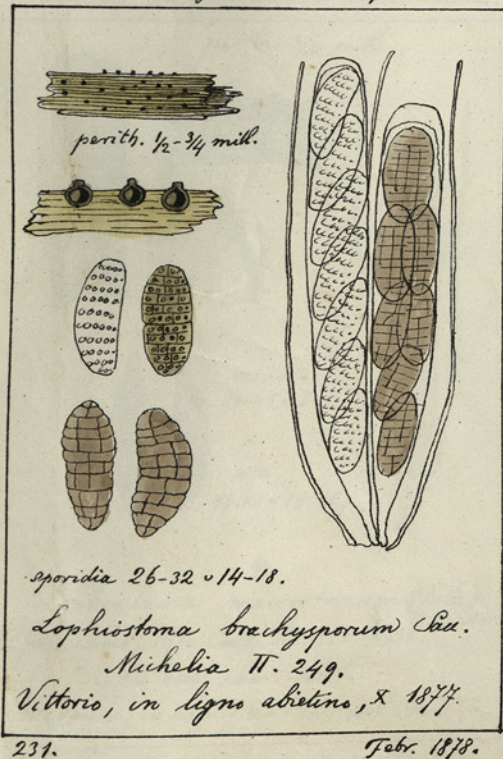 perith. 1/2-3/4 mill.
sporidia 26-32 ʋ 14-18.
Lophiostoma brachysporum Sacc.
Michelia II. 249.
Vittorio, in ligno abietino, X 1877.
231.
Febr. 1878.